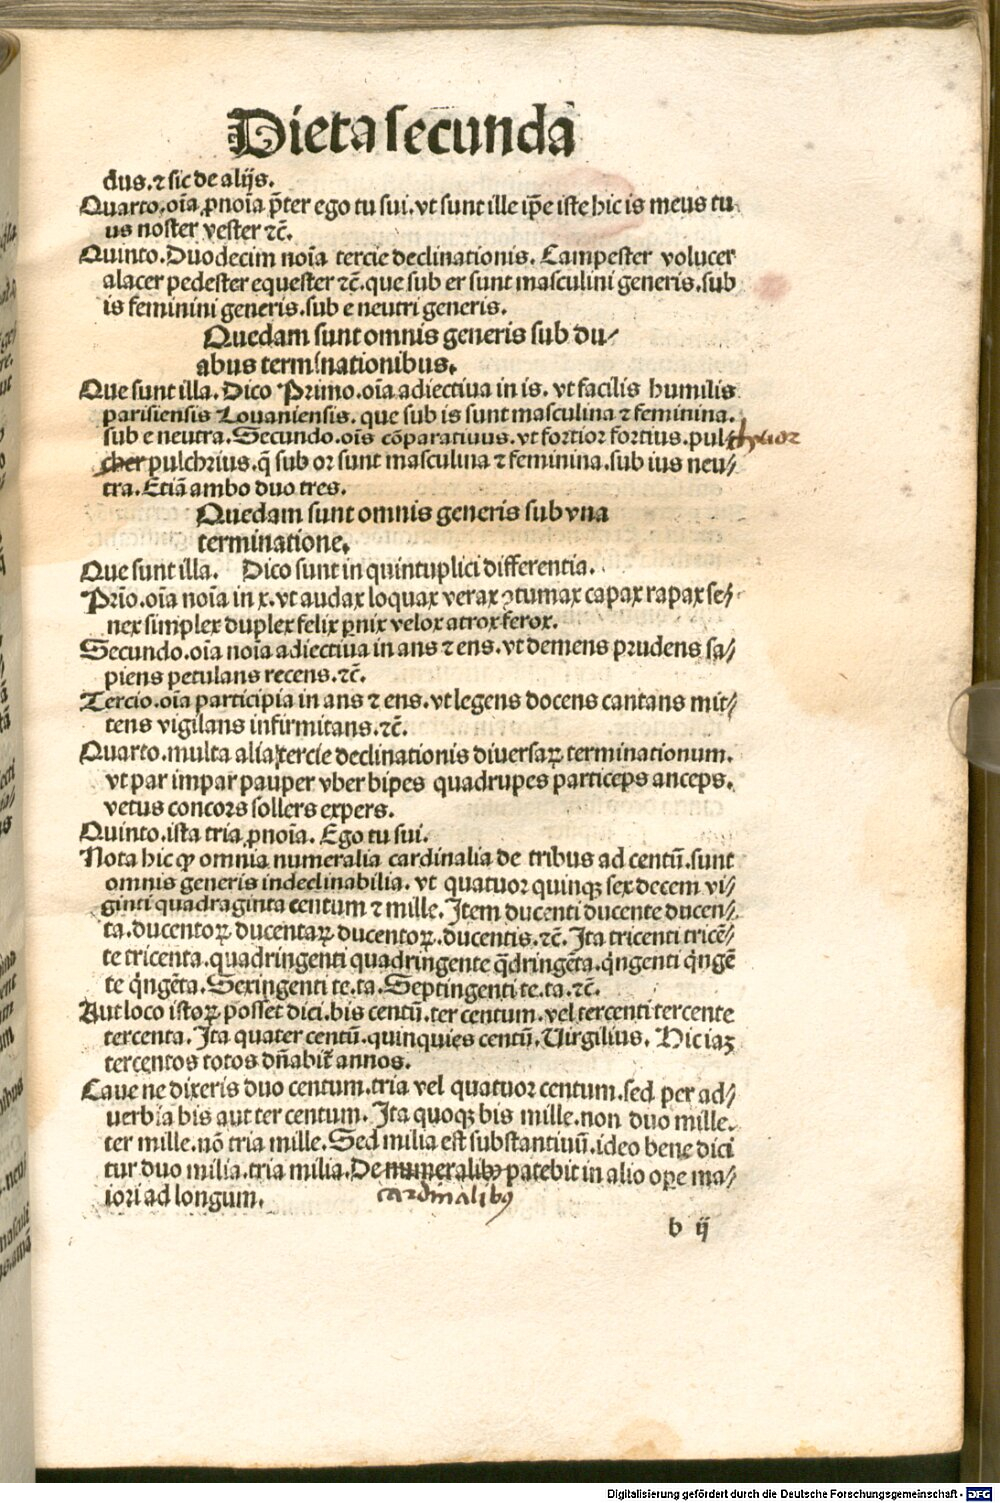 Dieta secunda
dus. ⁊ sic de alijs.
Quarto. oīa ꝓnoīa p̄ter ego tu sui. vt sunt ille ip̄e iste hic is meus tu
us noster vester ⁊c̄.
Quinto. Duodecim noīa tercie declinationis. Campester volucer
alacer pedester equester ⁊c̄. que sub er sunt masculini generis. sub
is feminini generis. sub e neutri generis.
Quedam sunt omnis generis sub du⸗
abus terminationibus.
Que sunt illa. Dico Primo. oīa adiectiua in is. vt facilis humilis
parisiensis Louaniensis. que sub is sunt masculina ⁊ feminina.
sub e neutra. Secundo. oīs cōparatiuus. vt fortior fortius. pul⸗chrior
cher pulchrius. q̄ sub or sunt masculina ⁊ feminina. sub ius neu⸗
tra. Etiā ambo duo tres.
Quedam sunt omnis generis sub vna
terminatione.
Que sunt illa. Dico sunt in quintuplici differentia.
Prīo. oīa noīa in x. vt audax loquax verax ꝯtumax capax rapax se⸗
nex simplex duplex felix ꝑnix velox atrox ferox.
Secundo. oīa noīa adiectiua in ans ⁊ ens. vt demens prudens sa⸗
piens petulans recens. ⁊c̄.
Tercio. oīa participia in ans ⁊ ens. vt legens docens cantans mit⸗
tens vigilans infirmitans. ⁊c̄.
Quarto. multa alia tercie declinationis diuersaꝝ terminationum.
vt par impar pauper vber bipes quadrupes particeps anceps.
vetus concors sollers expers.
Quinto. ista tria ꝓnoīa. Ego tu sui.
Nota hic ꝙ omnia numeralia cardinalia de tribus ad centū. sunt
omnis generis indeclinabilia. vt quatuor quinqꝫ sex decem vi⸗
ginti quadraginta centum ⁊ mille. Item ducenti ducente ducen⸗
ta. ducentoꝝ ducentaꝝ ducentoꝝ. ducentis. ⁊c̄. Ita tricenti tricē⸗
te tricenta. quadringenti quadringente q̄dringēta. q̇ngenti q̇ngē
te q̇ngēta. Sexingenti te. ta. Septingenti te. ta. ⁊c̄.
Aut loco istoꝝ posset dici. bis centū. ter centum. vel tercenti tercente
tercenta. Ita quater centū. quinquies centū. Uirgilius. Hic iaꝫ
tercentos totos dn̄abit̄ annos.
Caue ne dixeris duo centum. tria vel quatuor centum. sed per ad⸗
uerbia bis aut ter centum. Ita quoqꝫ bis mille. non duo mille.
ter mille. nō tria mille. Sed milia est substantiuū. ideo bene dici
tur duo milia. tria milia. De numeralibꝫ patebit in alio oꝑe ma⸗
cardinalibꝫ
iori ad longum.
b ij
Digitalisierung gefördert durch die Deutsche Forschungsgemeinschaft - DFG